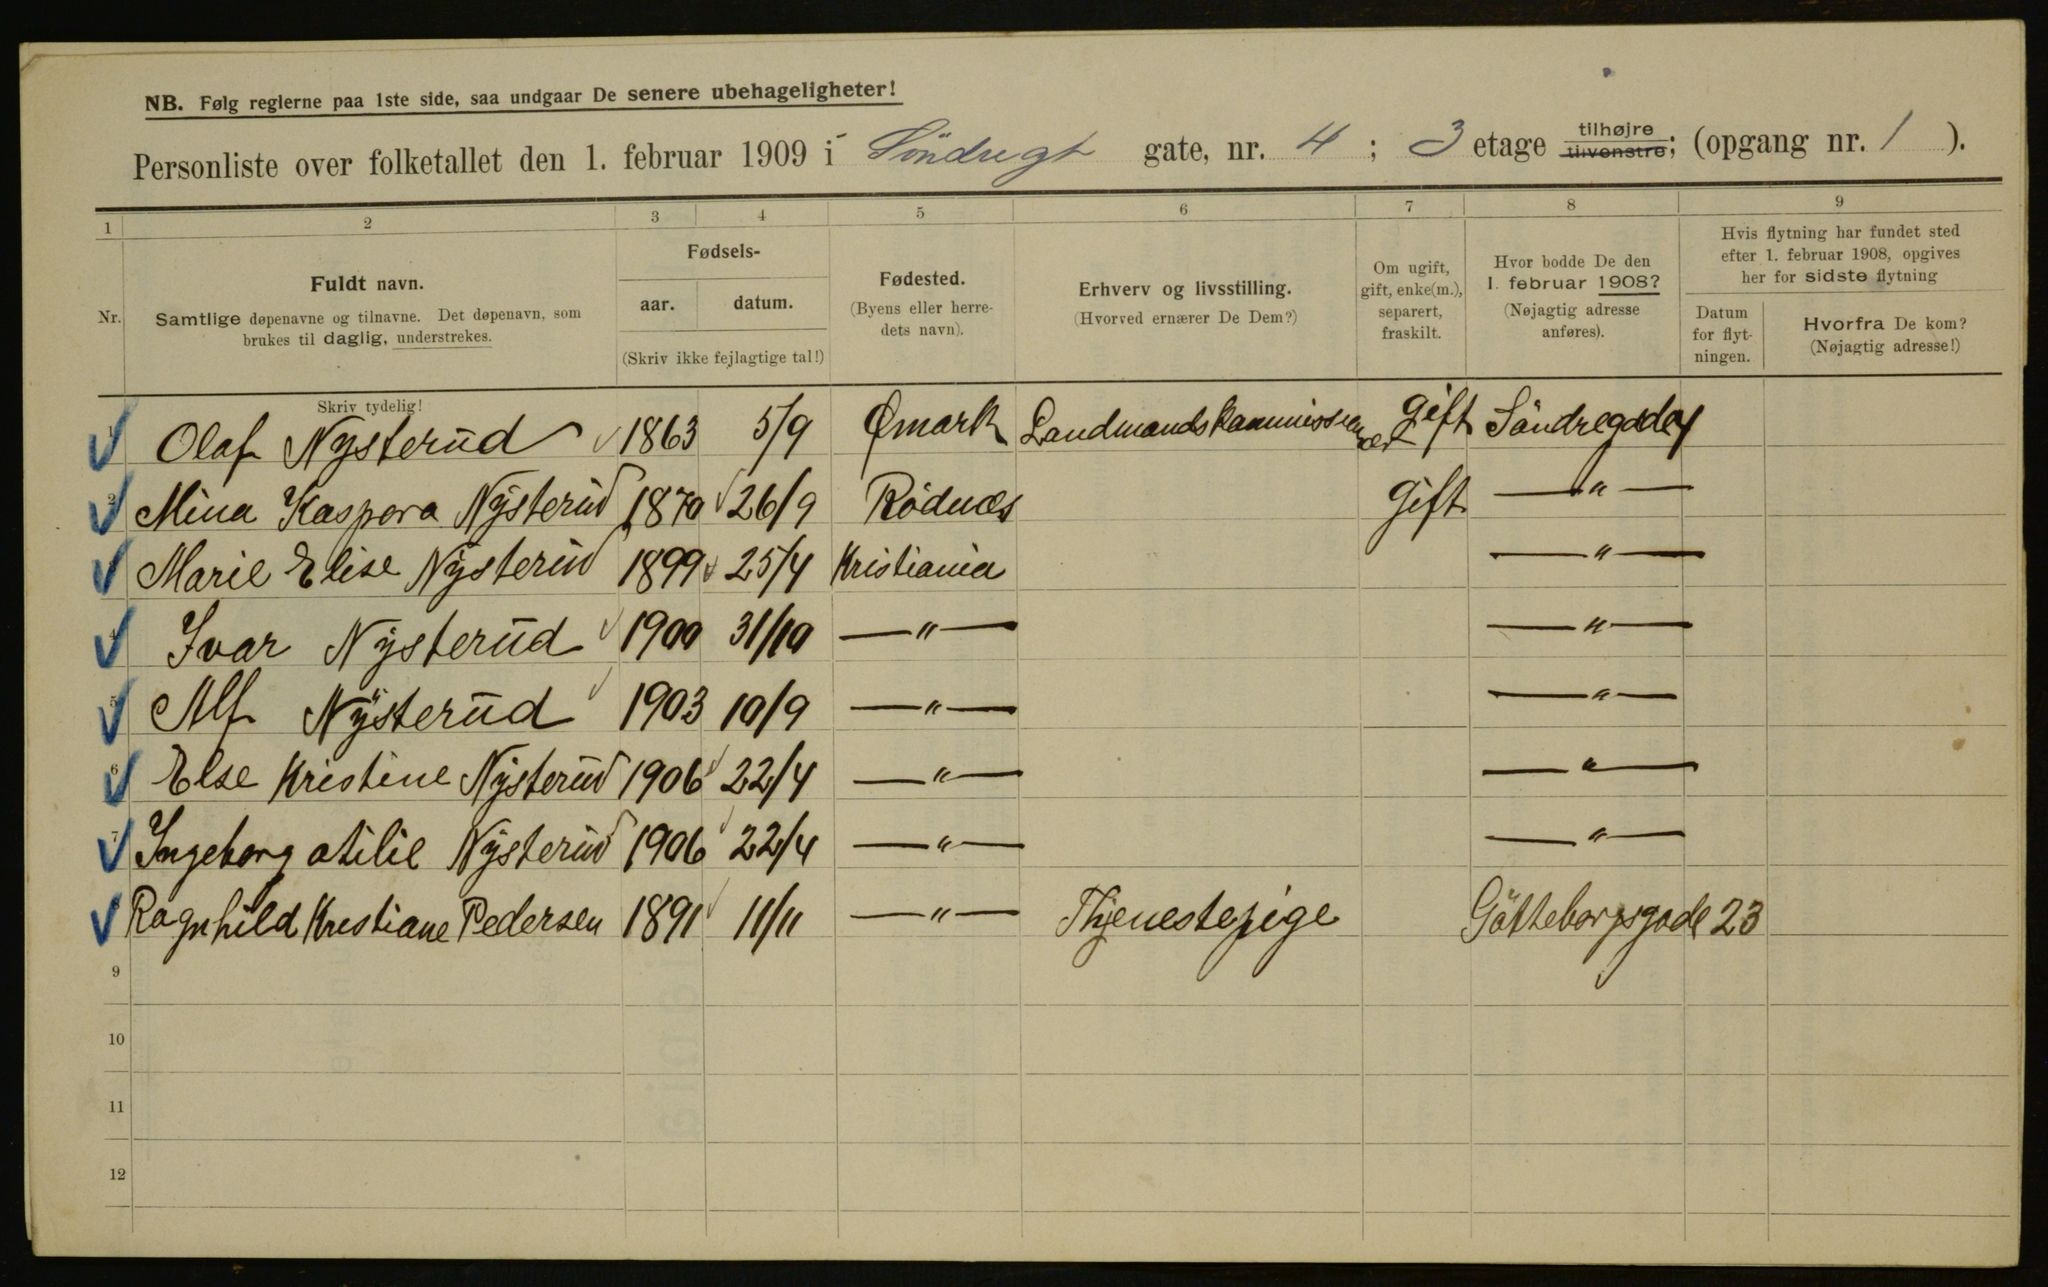 NB. Følg reglerne paa 1ste side, saa undgaar De senere ubehageligheter!
Personliste over folketallet den 1. februar 1909 i Söndregt gate, nr. 4 ; 3 etage tilhøjre tilvenstre; (opgang nr. 1 ).
1 2 3 4 5 6 7 8 9
Nr.
Fuldt navn.
Samtlige døpenavne og tilnavne. Det døpenavn, som
brukes til daglig, understrekes.
Skriv tydelig!
Fødsels-
aar. datum.
(Skriv ikke fejlagtige tal!)
Fødested.
(Byens eller herre-
dets navn).
Erhverv og livsstilling.
(Hvorved ernærer De Dem?)
Om ugift,
gift, enke(m.),
separert,
fraskilt.
Hvor bodde De den
1. februar 1908?
(Nøjagtig adresse
anføres).
Hvis flytning har fundet sted
efter 1. februar 1908, opgives
her for sidste flytning
Datum
for flyt-
ningen.
Hvorfra De kom?
(Nøjagtig adresse!)
1 Olaf Nysterud 1863 5/9 Ømark Gift
2 Mina Kaspara Nysterud 1870 26/9 Rödnæs Gift — " —
3 Marie Elise Nysterud 1899 25/4 Kristiania — " —
4 Ivar Nysterud 1900 31/10 — " — — " —
5 Alf Nysterud 1903 10/9 — " — — " —
6 Else Kristine Nysterud 1906 22/4 — " — — " —
7 Ingeborg otilie Nysterud 1906 22/4 — " — — " —
8 Ragnhild Kristiane Pedersen 1891 11/11 — " — Thjenestepige Götteborgsgade 23
9
10
11
12